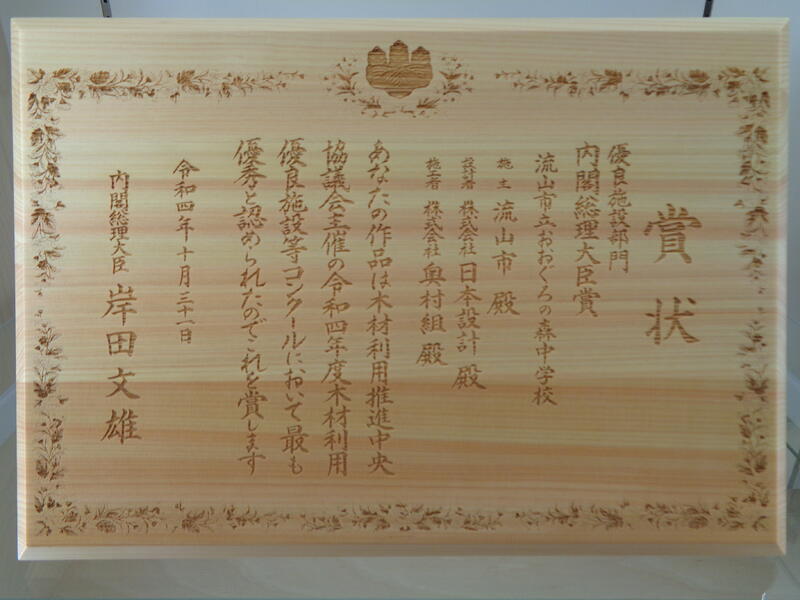 賞状
優良施設部門
内閣総理大臣賞
流山市立おおぐろの森中学校
施主 流山市 殿
設計者 株式会社 日本設計 殿
施工者 株式会社 奥村組 殿
あなたの作品は木材利用推進中央
協議会主催の令和四年度木材利用
優良施設等コンクールにおいて最も
優秀と認められたのでこれを賞します
令和四年十月三十一日
内閣総理大臣 岸田文雄